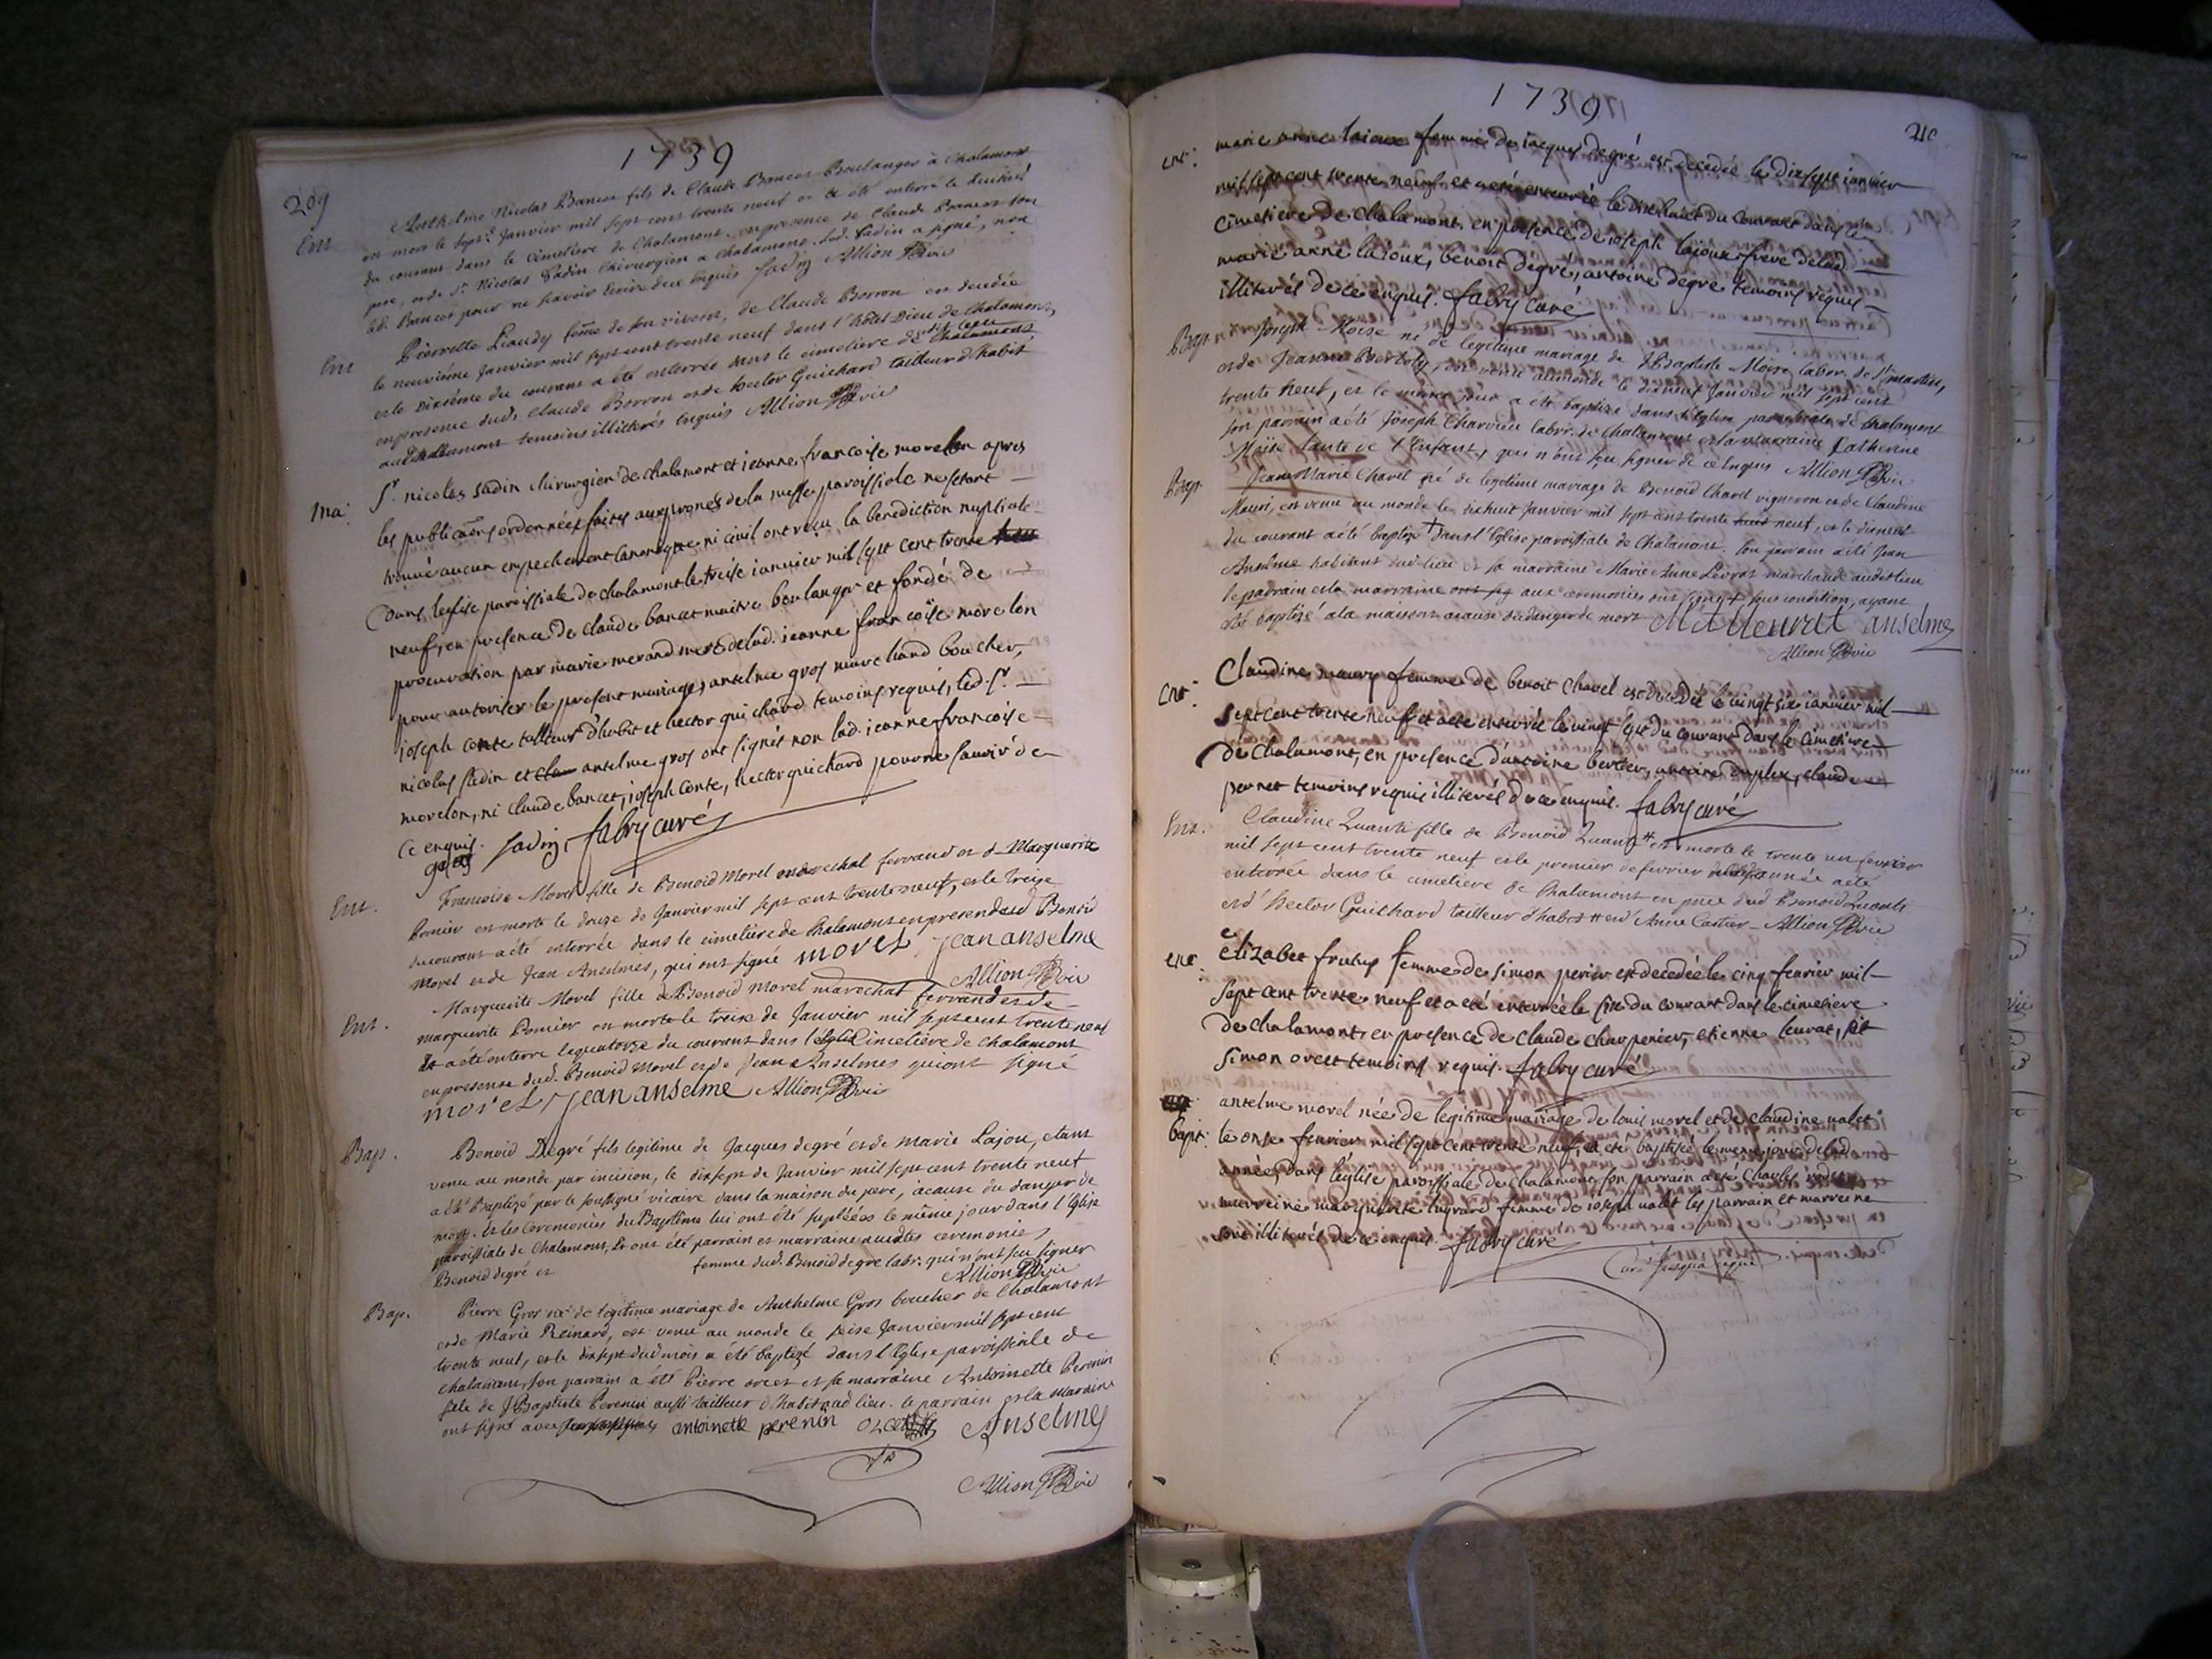 1739
209
Ent
Anthelme Nicolas Bancet fils de Claude Bancet Boulanger à Chalamont
est mort le sept.e Janvier mil sept cent trente neuf et a été enterré le huitiéme
du courant dans le cimetière de Chalamont. en presence de Claude Bancet son
pere, et de Sr. Nicolas Sadin Chirurgien a Chalamont. led. Sadin a signé, non
led. Bancet pour ne sçavoir écrire de ce enquis Sadin Allion vic
Ent
Pierrette Liaudy feme de son vivant, de Claude Borron est decedée
le neuviéme Janvier mil sept cent trente neuf dans l'hôtel Dieu de Chalamont,
et le dixiéme du courant a été enterrée dans le cimetiere de Chalamont
en presence dud. Claude Borron et de hector Guichard tailleur d'habit
aud. Challamont temoins illitterés enquis Allion vic
Ma:
Sr. nicolas sadin chirurgien de chalamont et jeanne francoise morelon apres
les publicaons ordonnées faites aux prones de la messe paroissiale ne s'etant
trouvé aucun empechement canonique ni civil ont reçu la benediction nuptiale
dans leglise paroissiale de chalamont le treise ianvier mil sept cent trente
neuf, en presence de claude bancet maitre boulanger et fondé de
procuration par marie merand mere de lad. ieanne francoise morelon
pour autoriser le present mariage, antelme gros marchand boucher,
joseph conte tailleur d'habit et hector guichard temoins requis, led. Sr.
nicolas sadin et antelme gros ont signés non lad. ieanne francoise
morelon, ni claude bancet, ioseph conte, hector guichard pour ne savoir de
ce enquis. Sadin, fabry curé
gros
Ent.
Francoise Morel fille de Benoid Morel marechal ferrand et d Marguerite
Bonier est morte le douze de Janvier mil sept cent trente neuf, et le treize
du courant a été enterrée dans le cimetière de Chalamont en presence dud Benoid
Morel et de Jean Anselmes, qui ont signé morel jean anselme
Allion vic
Ent.
Marguerite Morel fille de Benoid Morel marechal ferrand et de
marguerite Bonier est morte le treise de Janvier mil sept cent trente neuf
et a été enterré le quatorze du courant dans l'Eglise Cimetière de Chalamont
en presense dud. Benoid Morel et de Jean Anselmes qui ont signé
morel jean anselme Allion vic
Bap.
Benoid Degré fils legitime de Jacques degré et de Marie Lajou, etant
venu au monde par incision, le dixsept de Janvier mil sept cent trente neuf
a été Baptizé par le soussigné vicaire dans la maison du pere, acause du danger de
mort. Et les Ceremonies du Baptême lui ont été supléées le même jour dans l'Eglise
paroissiale de Chalamont, Et ont été parrain et marraine auxdites ceremonies
Benoid degré et femme dud. Benoid degre labr. qui n'ont sçu signer
Allion vic
Bap.
Pierre Gros né de legitime mariage de Anthelme Gros boucher de Chalamont
et de Marie Reinard, est venu au monde le seise Janvier mil sept cent
trente neuf, et le dixsept dud mois a été baptizé dans l'Eglise paroissiale de
chalamont, son parrain a été Pierre orcet et sa marraine Antoinette Perenin
fille de J Baptiste Perenin aussi tailleur d'habit aud lieu. le parrain et la maraine
ont signé avec antoinette perenin orcet Anselme
Allion vic
1739
210
ent:
marie anne laioux femme de iacques degré est decedée le dixsept ianvier
mil sept cent trente neuf et a eté enterrée le dixhuict du courant dans le
cimetiere de chalamont, en presence de ioseph laioux frere de lad
marie anne laioux, benoit degré, antoine degré temoins requis
illiterés de ce enquis. fabry curé
Bap.
Joseph Moise né de legitime mariage de J Baptiste Moyse labor. de St martin,
et de Jeanne Bertoly, est venu au monde le dixneuf Janvier mil sept cent
trente neuf, et le même jour a eté baptizé dans l'Eglise paroissiale de Chalamont
son parrain a été Joseph Charvieu labor. de Chalamont et la Marraine Catherine
Moïse tante de l'Enfant, qui n'ont sçu signer de ce Enquis Allion vic
Bap.
Jean Marie Chavel né de legitime mariage de Benoid Chavel vigneron et de Claudine
Mauri, est venu au monde le dixhuit Janvier mil sept cent trente huit neuf, et le dixneuf
du courant a été baptizé + dans l'Eglise paroissiale de Chalamont. son parrain a été Jean
Anselme habitant dud. lieu et sa marraine Marie Anne Levrat marchande audit lieu
le parrain et la marraine ont sig aux ceremonies ont signé + sous condition, ayant
été baptizé a la maison acause du danger de mort M A Leurat anselme
Allion vic
ent:
Claudine maury femme de benoit chavel est decedée le vingt six ianvier mil
sept cent trente neuf et a ete enterrée le vingt sept du courant dans le cimetiere
de chalamont, en presence d'antoine bertier, antoine duplex, claude
pernet temoins requis illiterés de ce enquis. fabry curé
Ent.
Claudine Quanti fille de Benoid Quanti # est morte le trente un fevrier
mil sept cent trente neuf et le premier de fevrier année a été
enterrée dans le cimetiere de Chalamont en pnce dud Benoid Quanti
et d' Hector Guichard tailleur d'habit # et d' Anne Cartier - Allion vic
ent:
elizabet frulup femme de simon perier est decedée le cinq fevrier mil
sept cent trente neuf et a eté enterrée le six du courant dans le cimetiere
de chalamont, en presence de claude charpenier, etienne leurat, et
simon orcet temoins requis. fabry curé
bapt:
antelme morel née de legitime mariage de louis morel et de claudine nalet
le onse fevrier mil sept cent trente neuf, a ete baptisée le meme jour de lad
année, dans l'église paroissiale de chalamont, son parrain a été Charles
marreine marguerite femme de ioseph nalet les parrain et marreine
sont illiterés de ce enquis. fabry curé